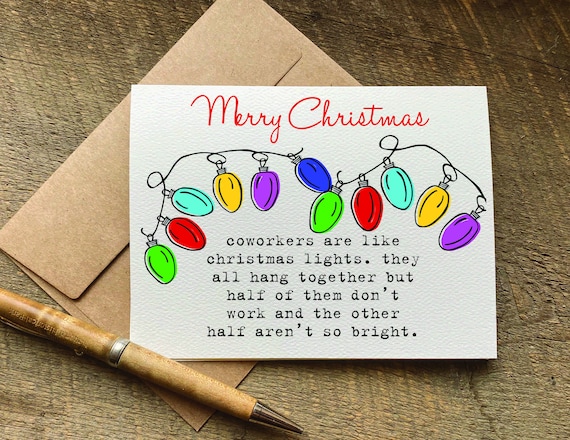 Merry Christmas
coworkers are like
christmas lights. they
all hang together but
half of them don't
work and the other
half aren't so bright.